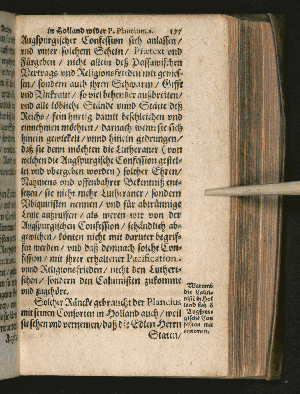 in Holland wider P. Plancium. 135
Augspurgischer Confession sich anlassen/
und unter solchem Schein/ Prætext und
Fürgeben/ nicht allein deß Passawischen
Vertrags und Religionsfrieden mit genies-
sen/ sondern auch ihren Schwarm/ Gifft
und Unkraut/ so viel behender ausbreiten/
und alle löbliche Stände unnd Städte deß
Reichs/ fein hurtig damit beschleichen und
einnehmen möchten/ darnach wenn sie sich
hinein gewickelt/ unnd hinein gedrungen/
daß sie denn möchten die Lutheraner (von
welchen die Augspurgische Confession gestel-
let und übergeben worden) solcher Ehren/
Nahmens und offenbahrer Bekentniß ent-
setzen/ sie nicht mehr Lutheraner/ sondern
Ubiquitisten nennen/ und für abtrünnige
Leute außruffen/ als weren wir von der
Augspurgischen Confession/ schändlich ab-
gewichen/ könten nicht mit darunter begrif-
fen werden/ und daß demnach solche Con-
fession/ mit ihrer erhaltener Pacification,
unnd Religionsfrieden/ nicht den Lutheri-
schen/ sondern den Calvinisten zukomme
und zugehöre.
Solcher Räncke gebraucht der Plancius
mit seinen Consorten in Holland auch/ weil
sie sehen und vernemen/ daß die Edlen Herrn
Staten/
Warumb
die Calvi-
nisten in Hol-
land sich d
Augspur-
gischen Con-
fession mit